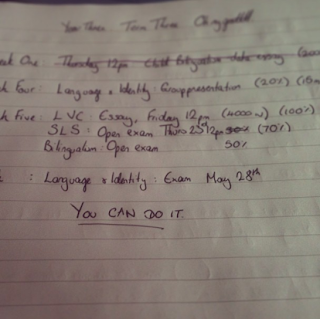 Year Three Term Three
One Thursday 12pm Child Bilingualism data essay
Four: Language & Identity: Group presentation (20%)
Five: LVC: Essay, Friday 12pm (4000w) (100%)
SLS: Open exam Thurs 25th 12pm (70%)
Bilingualism: Open exam 50%
: Language & Identity: Exam May 28th
YOU CAN DO IT.